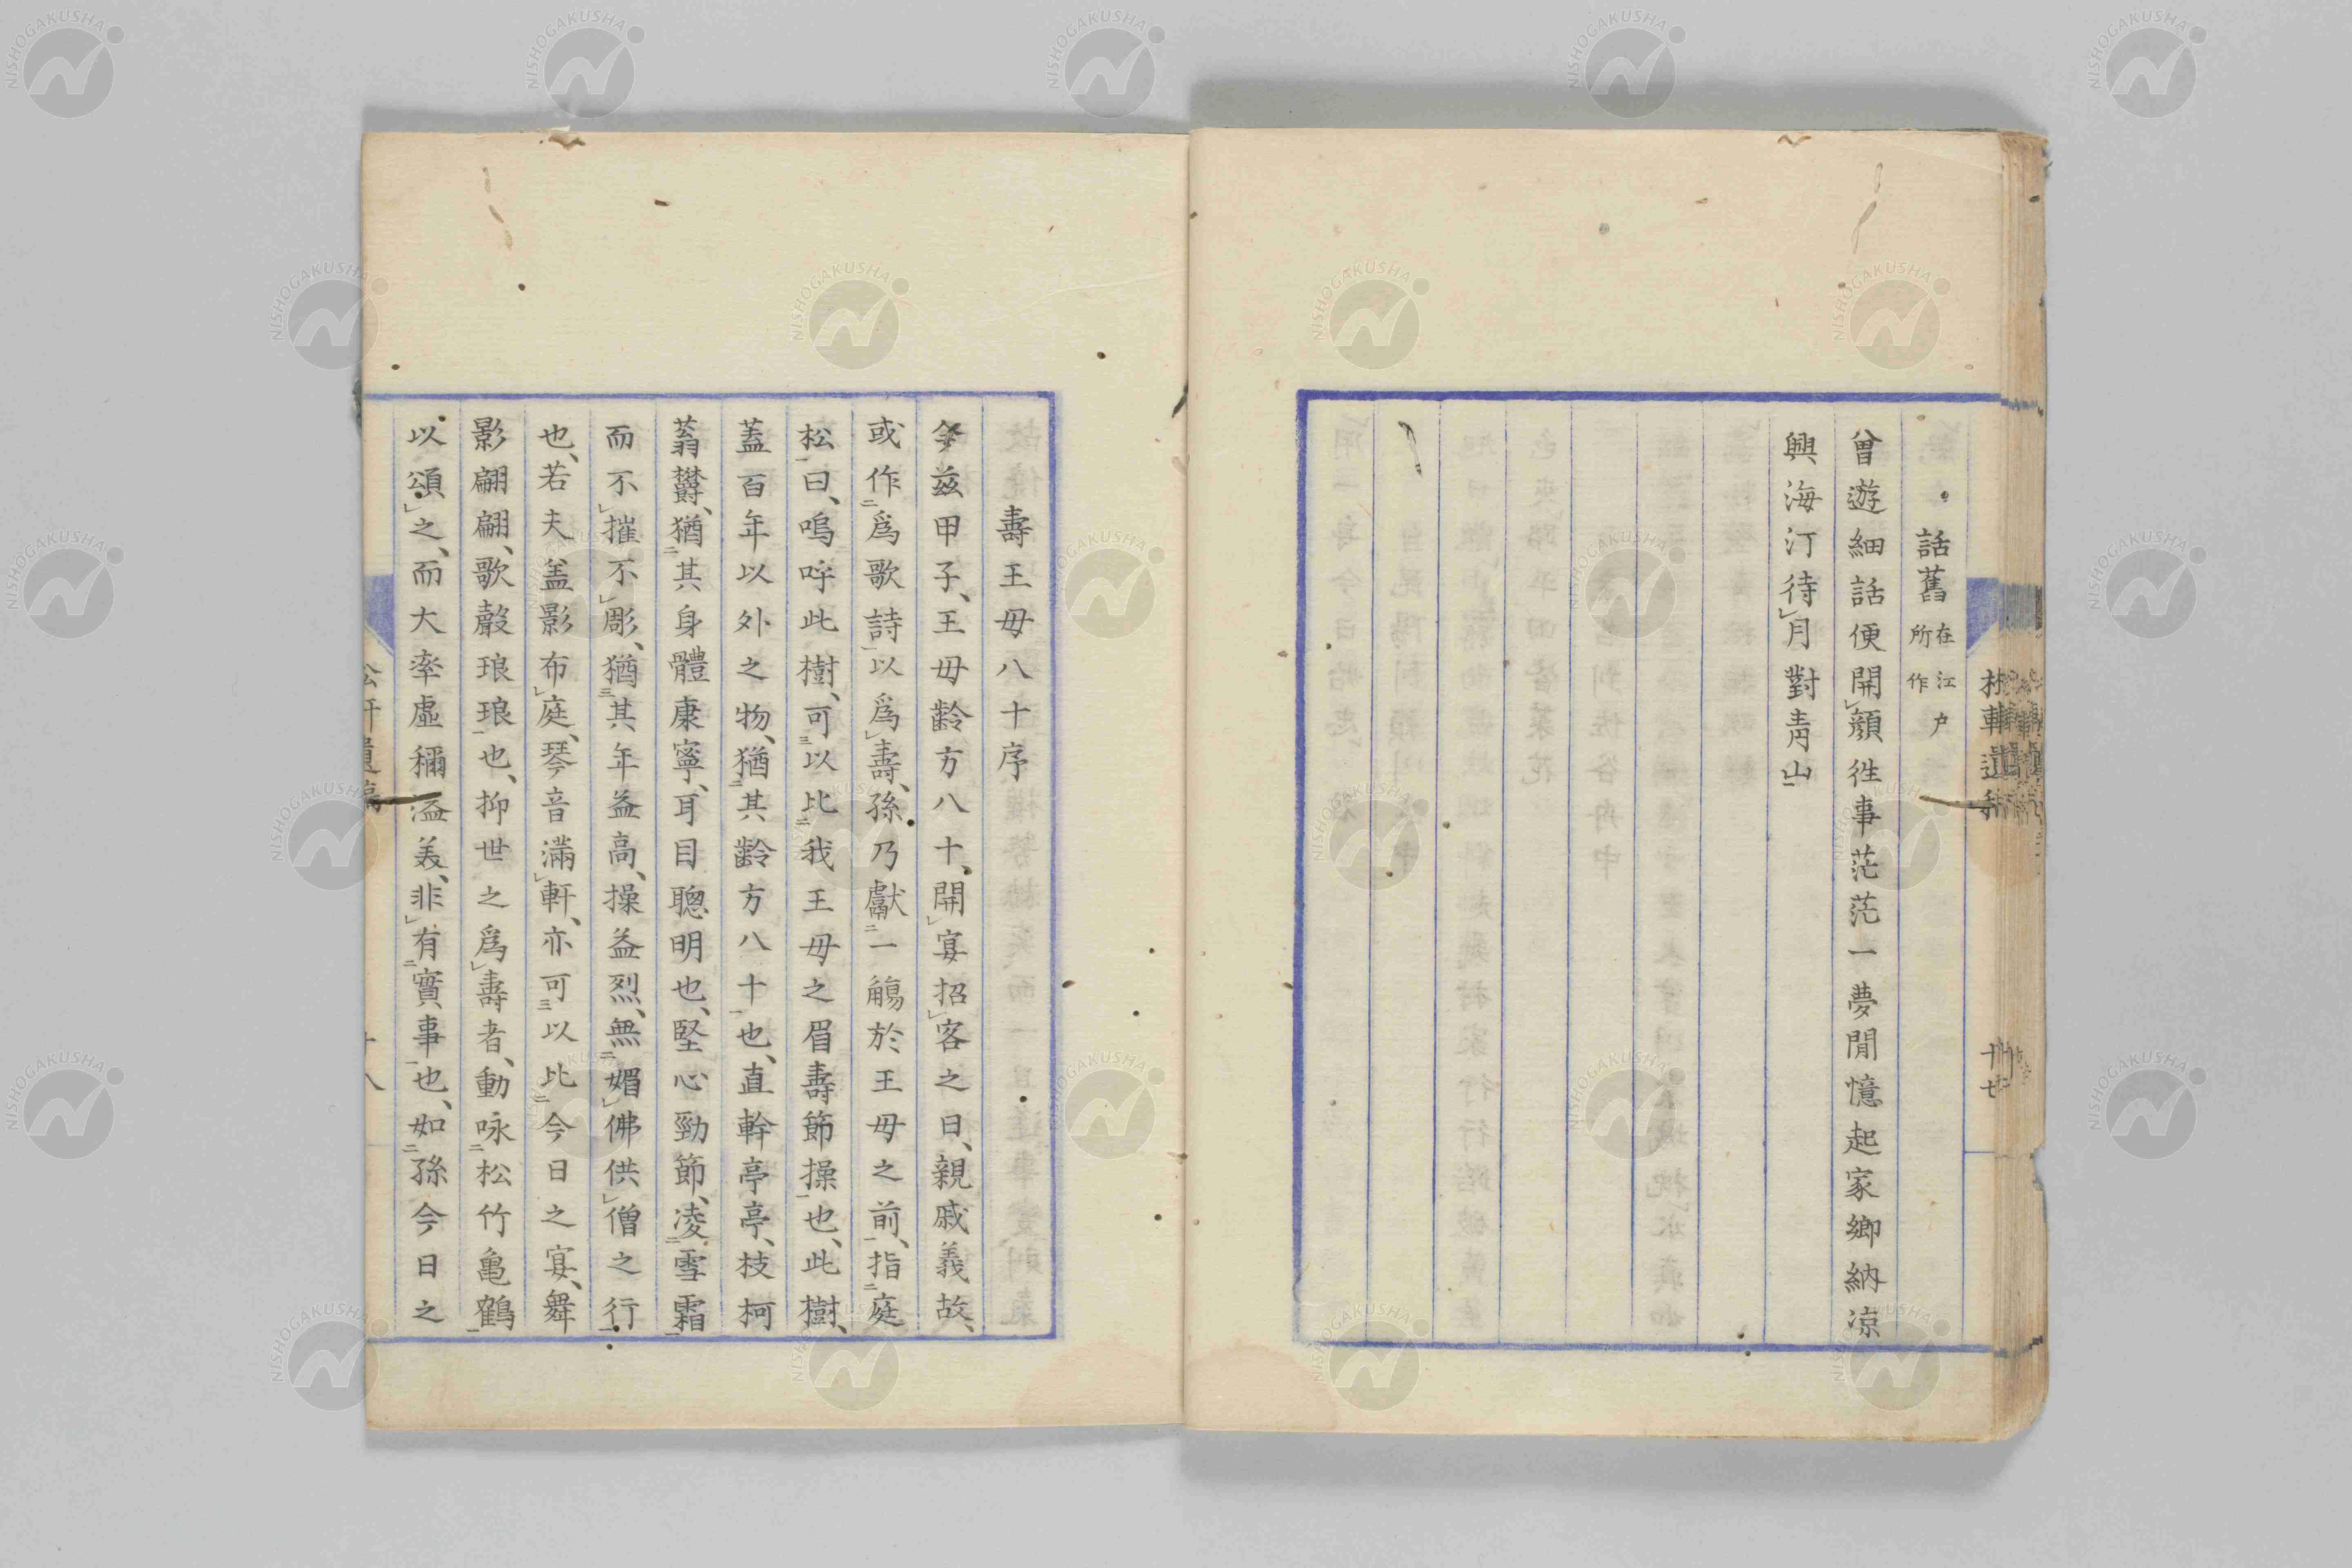 話舊 在江戸所作
曾遊細話便開顔徃事茫茫一夢間憶起家鄉納涼
興海汀待月對靑山
十七
壽王母八十序
今茲甲子、王母齡方八十、開宴招客之日、親戚義故、
或作爲歌詩以爲壽、孫乃獻一觴於王母之前、指庭
松曰、嗚呼此樹、可以比我王母之眉壽節操也、此樹、
蓋百年以外之物、猶其齡方八十也、直幹亭亭、枝柯
蓊欝、猶其身體康寧、耳目聰明也、堅心勁節、凌雪霜
而不摧不彫、猶其年益高、操益烈、無媚佛供僧之行
也、若夫蓋影布庭、琴音滿軒、亦可以比今日之宴、舞
影翩翩、歌聲琅琅也、抑世之爲壽者、動咏松竹亀鶴
以頌之、而大率虛稱溢美、非有實事也、如孫今日之
十八
NISHOGAKUSHA